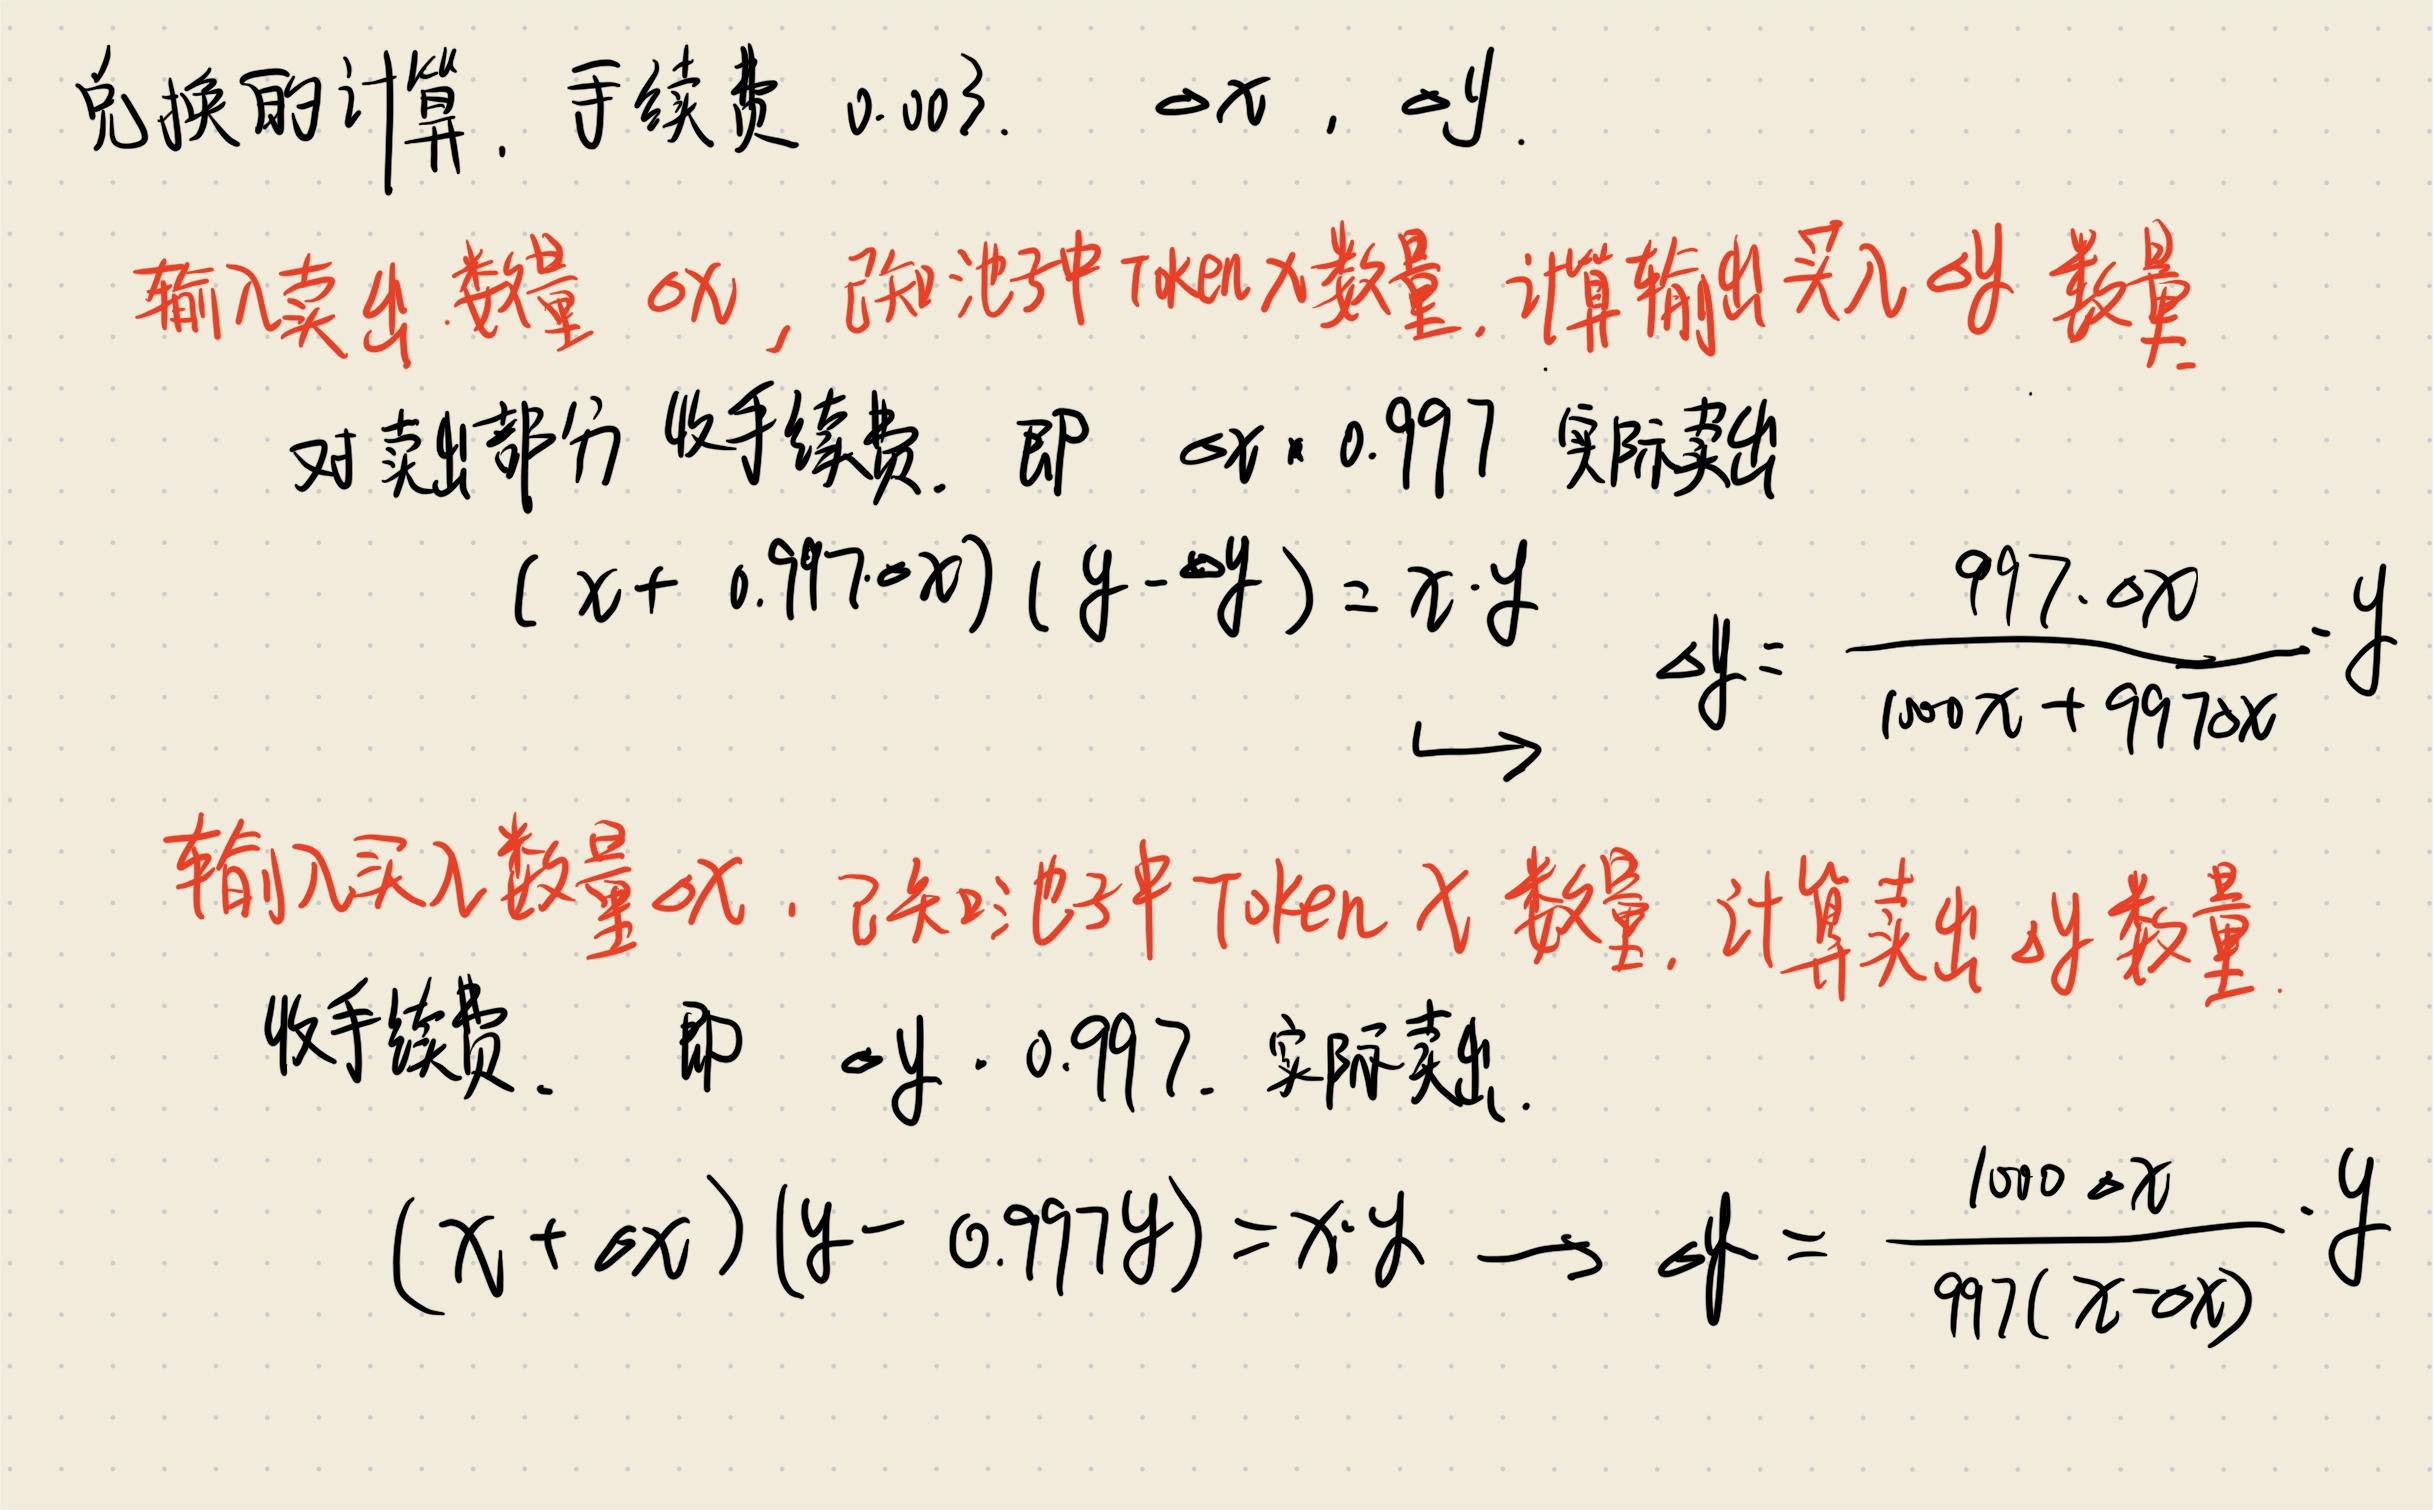 兑换的计算. 手续费 0.003. △x , △y.
输入卖出数量 △x, 已知池子中 Token x 数量. 计算输出买入 △y 数量.
对卖出部分收手续费. 即 △x × 0.997 实际卖出
(x + 0.997·△x)(y - △y) = x·y
↳ △y = \frac{997·△x}{1000x + 997△x}·y
输入买入数量 △x. 已知池子中 Token x 数量. 计算卖出 △y 数量.
收手续费. 即 △y · 0.997. 实际卖出.
(x + △x)(y - 0.997y) = x·y → △y = \frac{1000△x}{997(x-△x)}·y